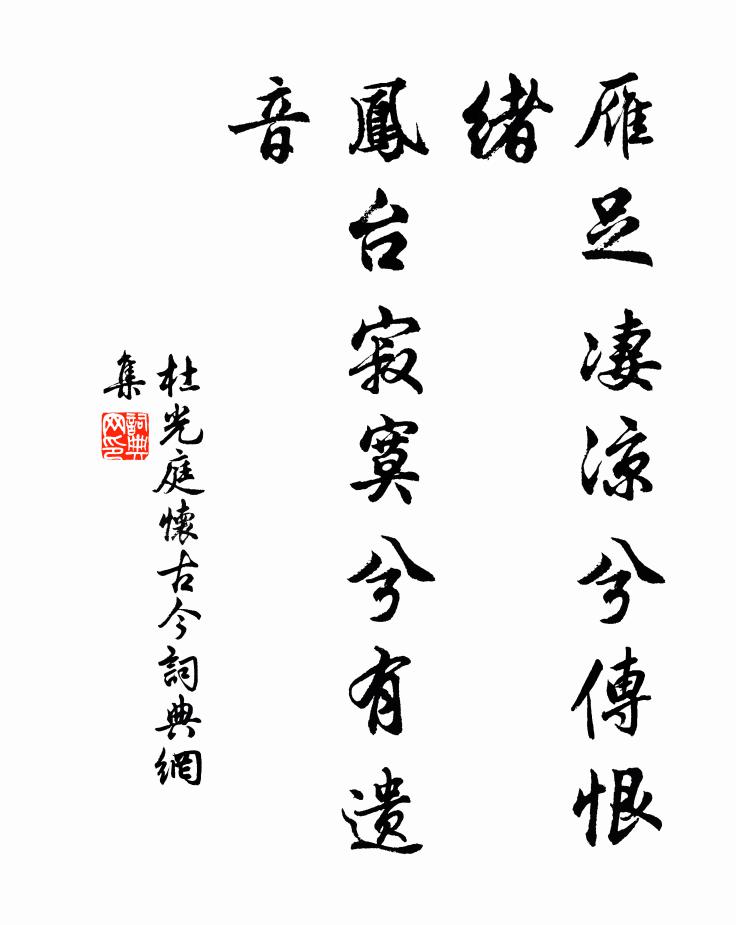 雁足淒涼兮傳恨
緒
鳳台寂寞兮有遺
音
杜光庭懷古今詞典網
集
詞典
网印